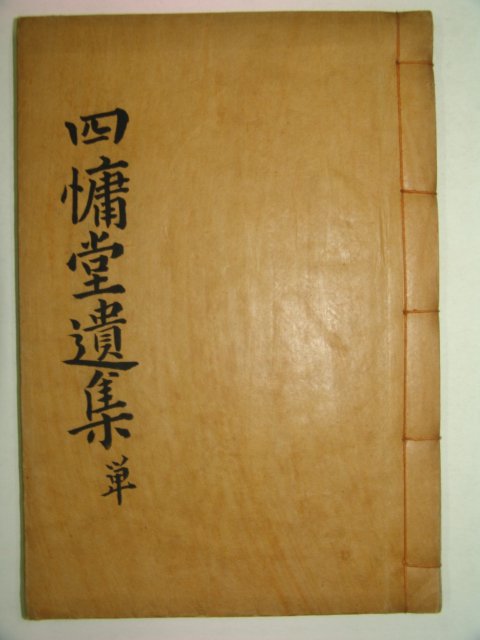 四慵堂遺集 単